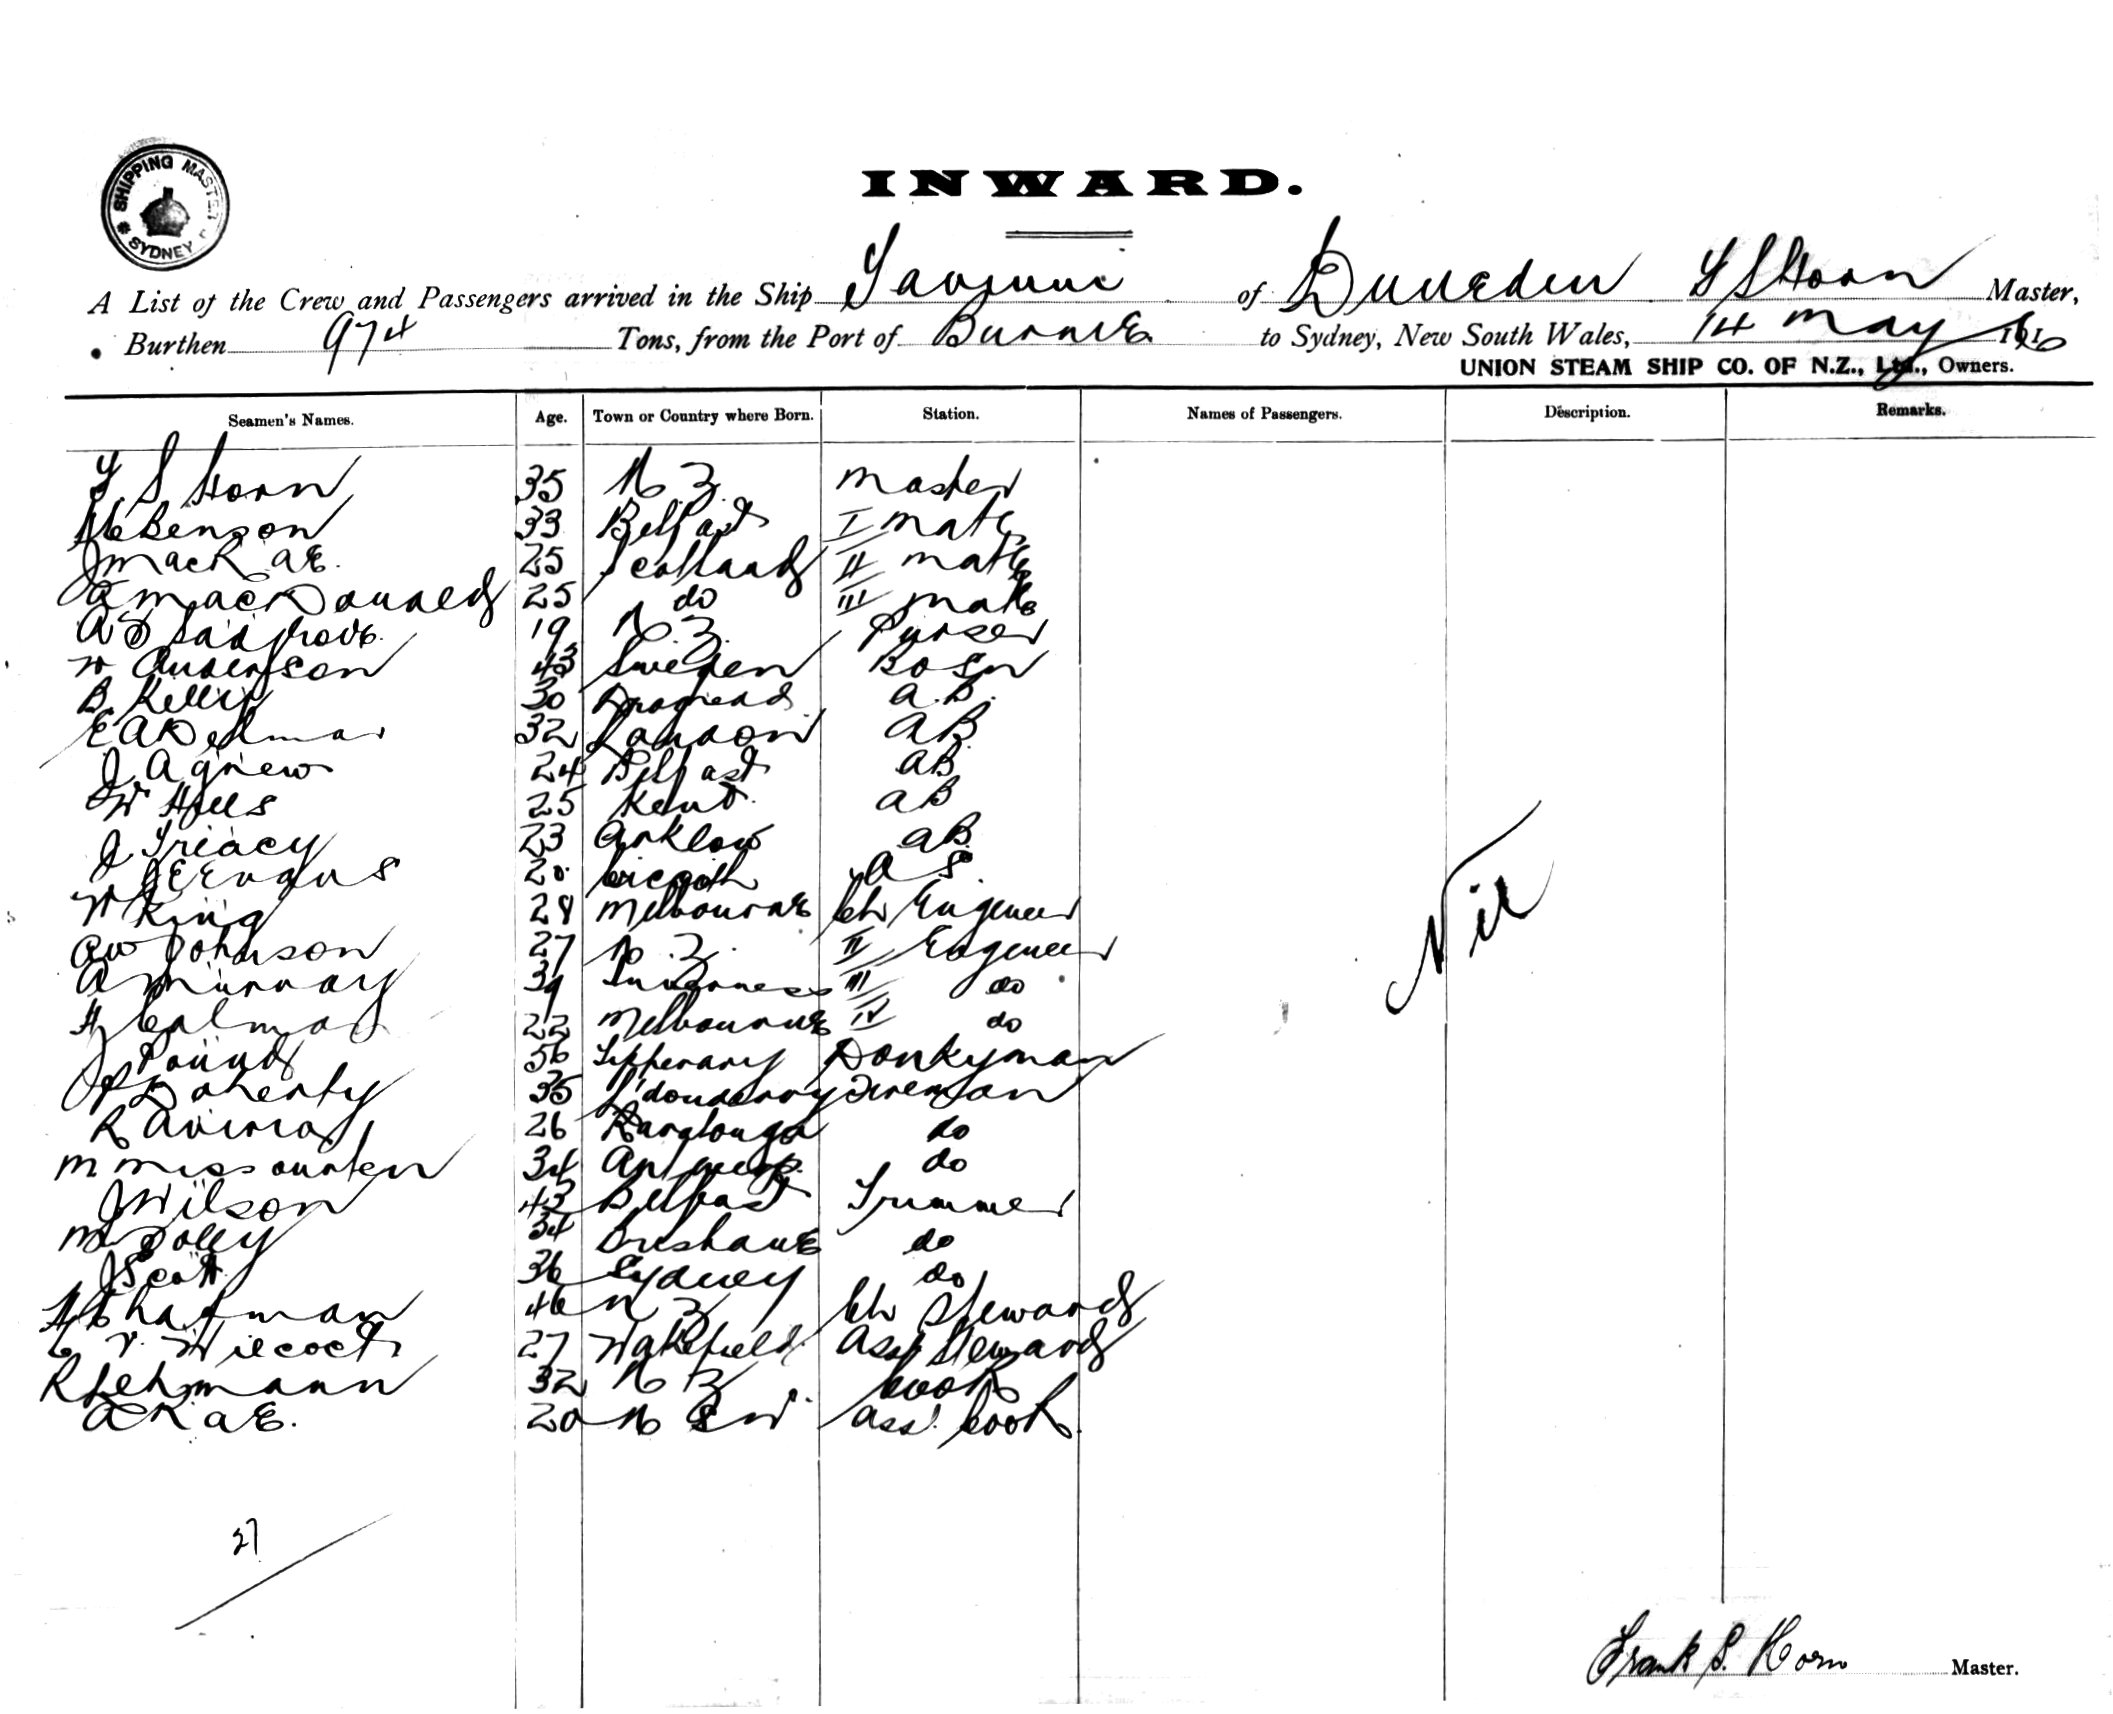 SHIPPING MASTER SYDNEY
INWARD.
A List of the Crew and Passengers arrived in the Ship Taviuni of Dunedin F S Horn Master,
Burthen 974 Tons, from the Port of Burnie to Sydney, New South Wales, 14 May 1916
UNION STEAM SHIP CO. OF N.Z., Ltd., Owners.
Seamen's Names. Age. Town or Country where Born. Station. Names of Passengers. Description. Remarks.
F S Horn 35 N Z. Master
H Benson 33 Belfast I Mate
J MacRae. 25 Scotland II Mate
A MacDonald 25 do III Mate
A 19 N. Z. Purser
W Anderson 43 Sweden Bosn
B. Kelly 30 A.B.
E A Delmar 32 London AB
J Agnew 24 Belfast AB
W Hills 25 Kent. AB
J Treacy 23 Arklow AB
W J E Evans 20 O S
W King 28 Melbourne Ch Engineer
A W Johnson 27 N. Z. II Engineer
A Murray 39 Inverness III do
H Calmar 22 Melbourne IV do
J Pound 56 Tipperary Donkyman
P Doherty 35 L'donderry Fireman
R 26 Raratonga do
M 34 Antwerp. do
J Wilson 43 Belfast Trimmer
M Foley 34 Brisbane do
J Scott 36 Sydney do
H Chapman 46 N Z Ch Steward
C V. Wilcock 27 Wakefield. Asst Steward
R Lehmann 32 N Z Cook
A Rae. 20 N S W. Asst. Cook
Nil
27
Frank S. Horn Master.